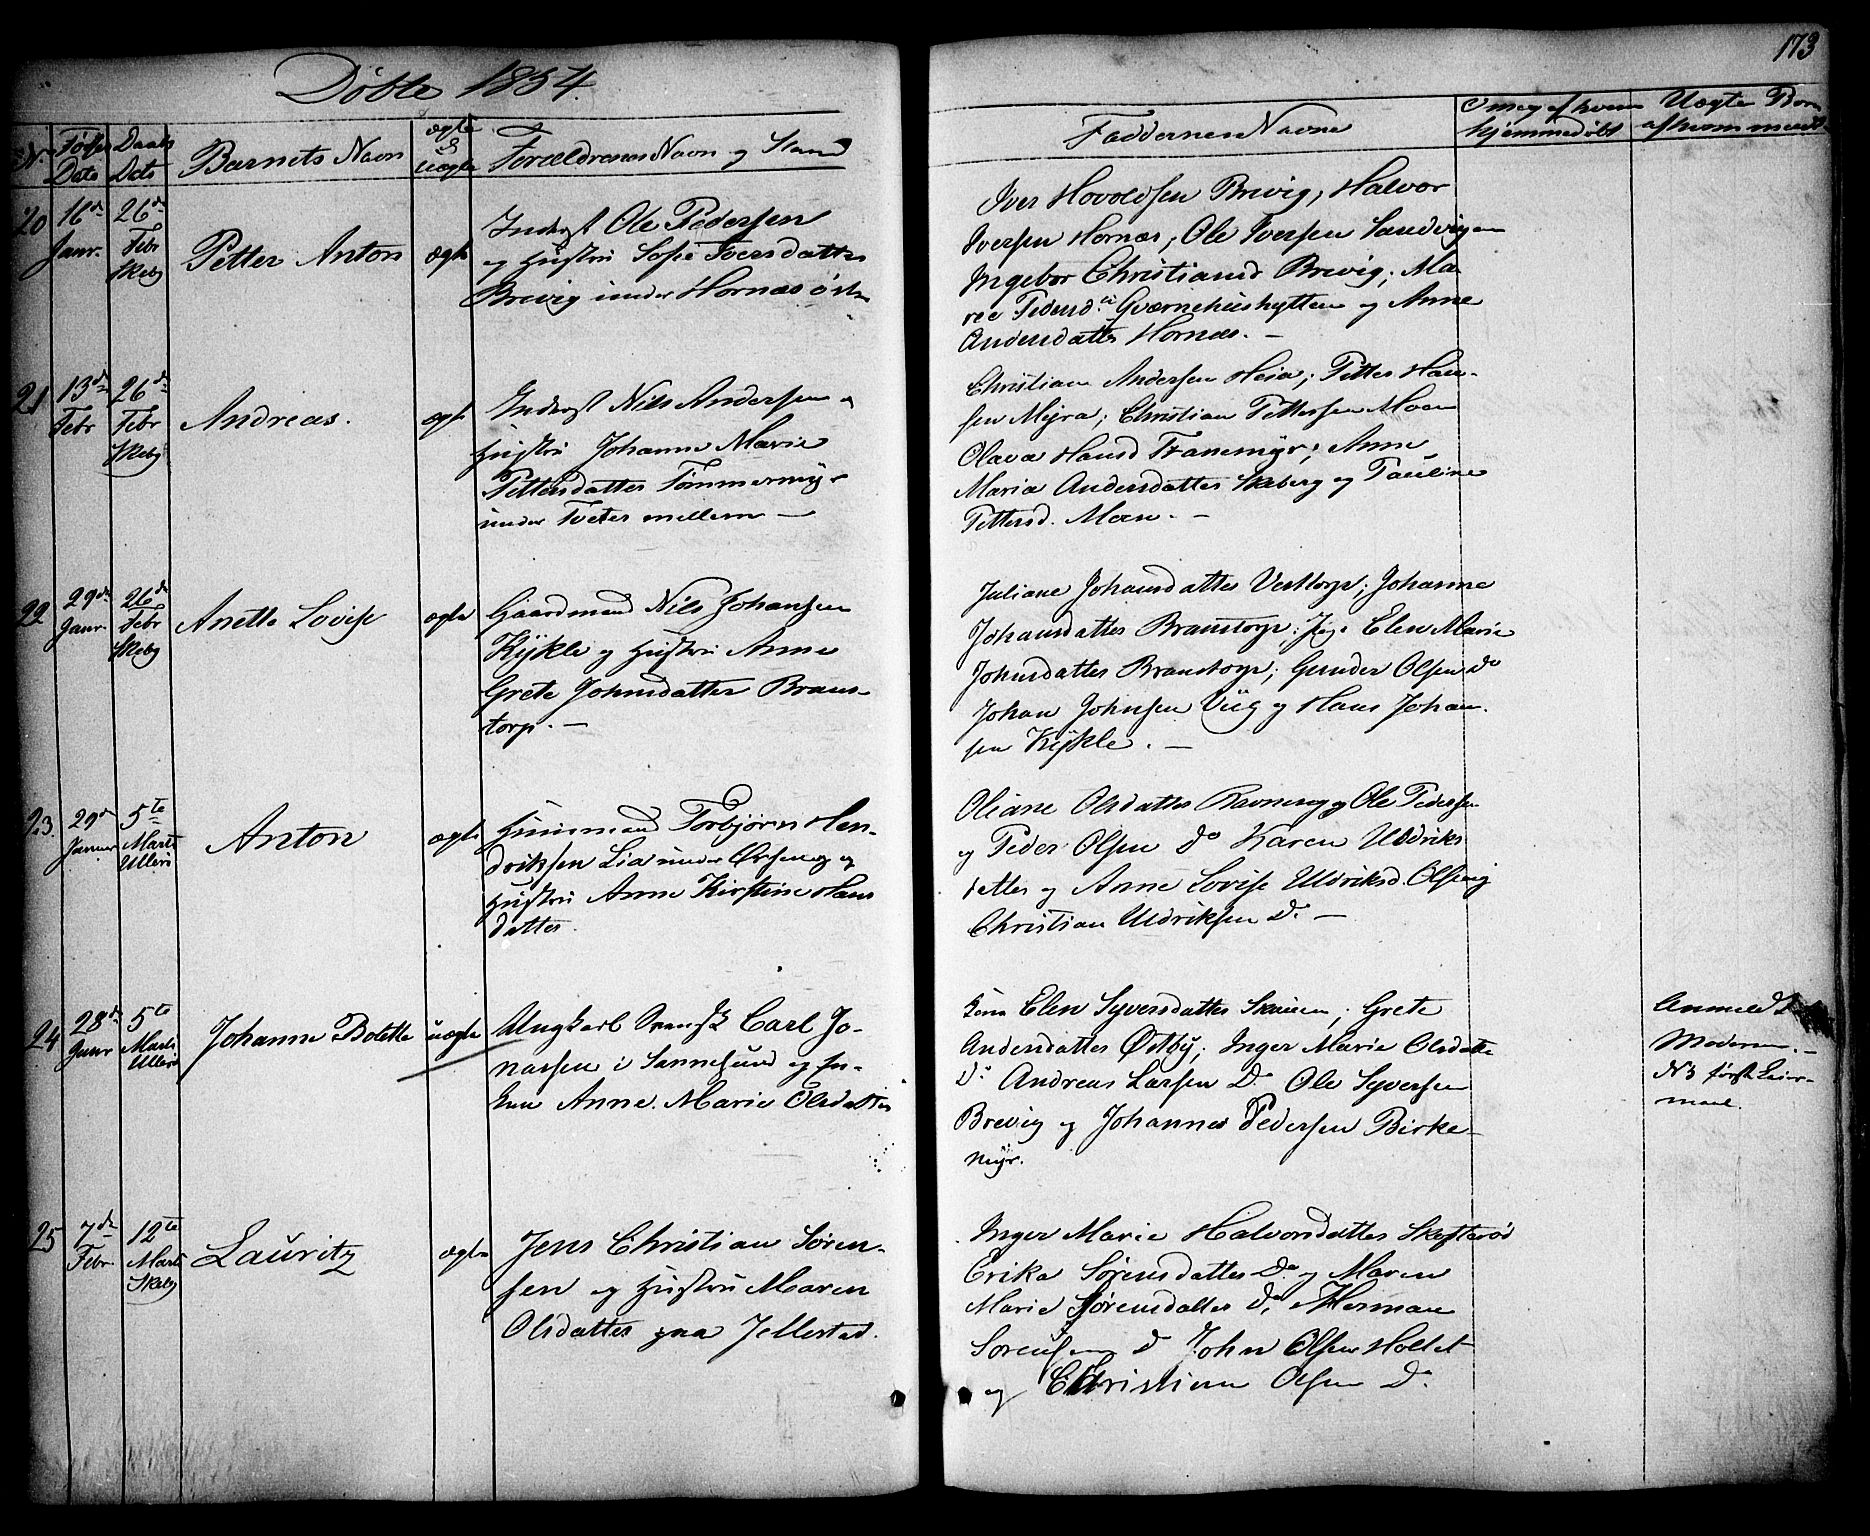 173
Døbte 1854.
No Fødsels Date Daabs Dato Barnets Navn ægte & uægte Forældrenes Navn og Stand
Faddernes Navne
Om og af hvem hjemmedøbt
Uægte Børn af hvem meldt
20 16de Janr. 26de Febr Skeby Petter Anton ægte
Inderst Ole Pedersen
og Hustru Sofie Iversdatter
Brevig under Hornæs østre
Iver Hovoldsen Brevig, Halvor
Iversen Hornæs, Ole Iversen Sandvigen
Ingebor Christiansd Brevig; Ma
ree Pedersd. Qværnehushytten og Anne
Andersdatter Hornæs. —
21 13de Febr 26de Febr Skeby Andreas. ægte
Inderst Nils Andersen og
Hustru Johanne Marie
Pettersdatter Tømmermyr
under Tveter mellem —
Christian Andersen Heia; Petter Han-
sen Myra; Christian Pettersen Moen
Olava Hansd Tranemyr; Anne
Maria Andersdatter Skeberg og Pauline
Pettersd. Moen. —
22 29de Janr. 26de Febr Skeby Anette Lovise ægte
Gaardmand Nils Johansen
Kykle og Hustru Anne
Grete Johnsdatter Brans-
torp. —
Juliane Johansdatter Vesttorp; Johanne
Johansdatter Branstorp; Pige Elen Marie
Johnsdatter Branstorp; Gunder Olsen do
Johan Johnsen Viig og Hans Johan-
sen Kykle. —
23. 29de Januar 5te Marts Ullerø Anton ægte
Huusmand Torbjørn Hen-
driksen Lia under Ørsneg og
Hustru Anne Kirstine Hans
datter.
Oliane Olsdatter Ravneng og Ole Pedersen
og Peder Olsen Do Karen Uldriks
datter og Anne Lovise Uldriksd. Olseng
Christian Uldriksen Do —
24 28de Janr 5te Marts Ullerø Johanne Bolette uægte
Ungkarl Svensk Carl Jo-
nassen i Sannesund og En-
ken Anne Marie Olsdatter
Kone Elen Syversdatter Skauen; Grete
Andersdatter Østby; Inger Marie Olsdatter
Do Andreas Larsen Do Ole Syversen
Brevig og Johannes Pedersen Birke-
myr.
Anmeldt
Moderen. —
No 3 første Leier-
maal.
25 7de Febr. 12te Marts Skeby Lauritz ægte
Jens Christian Søren-
sen og Hustru Maren
Olsdatter paa Jellestad.
Inger Marie Halvorsdatter Skefterød
Erika Sørensdatter Do og Maren
Marie Sørensdatter Do, Herman
Sørensen Do John Olsen Holtet
og Christian Olsen Do